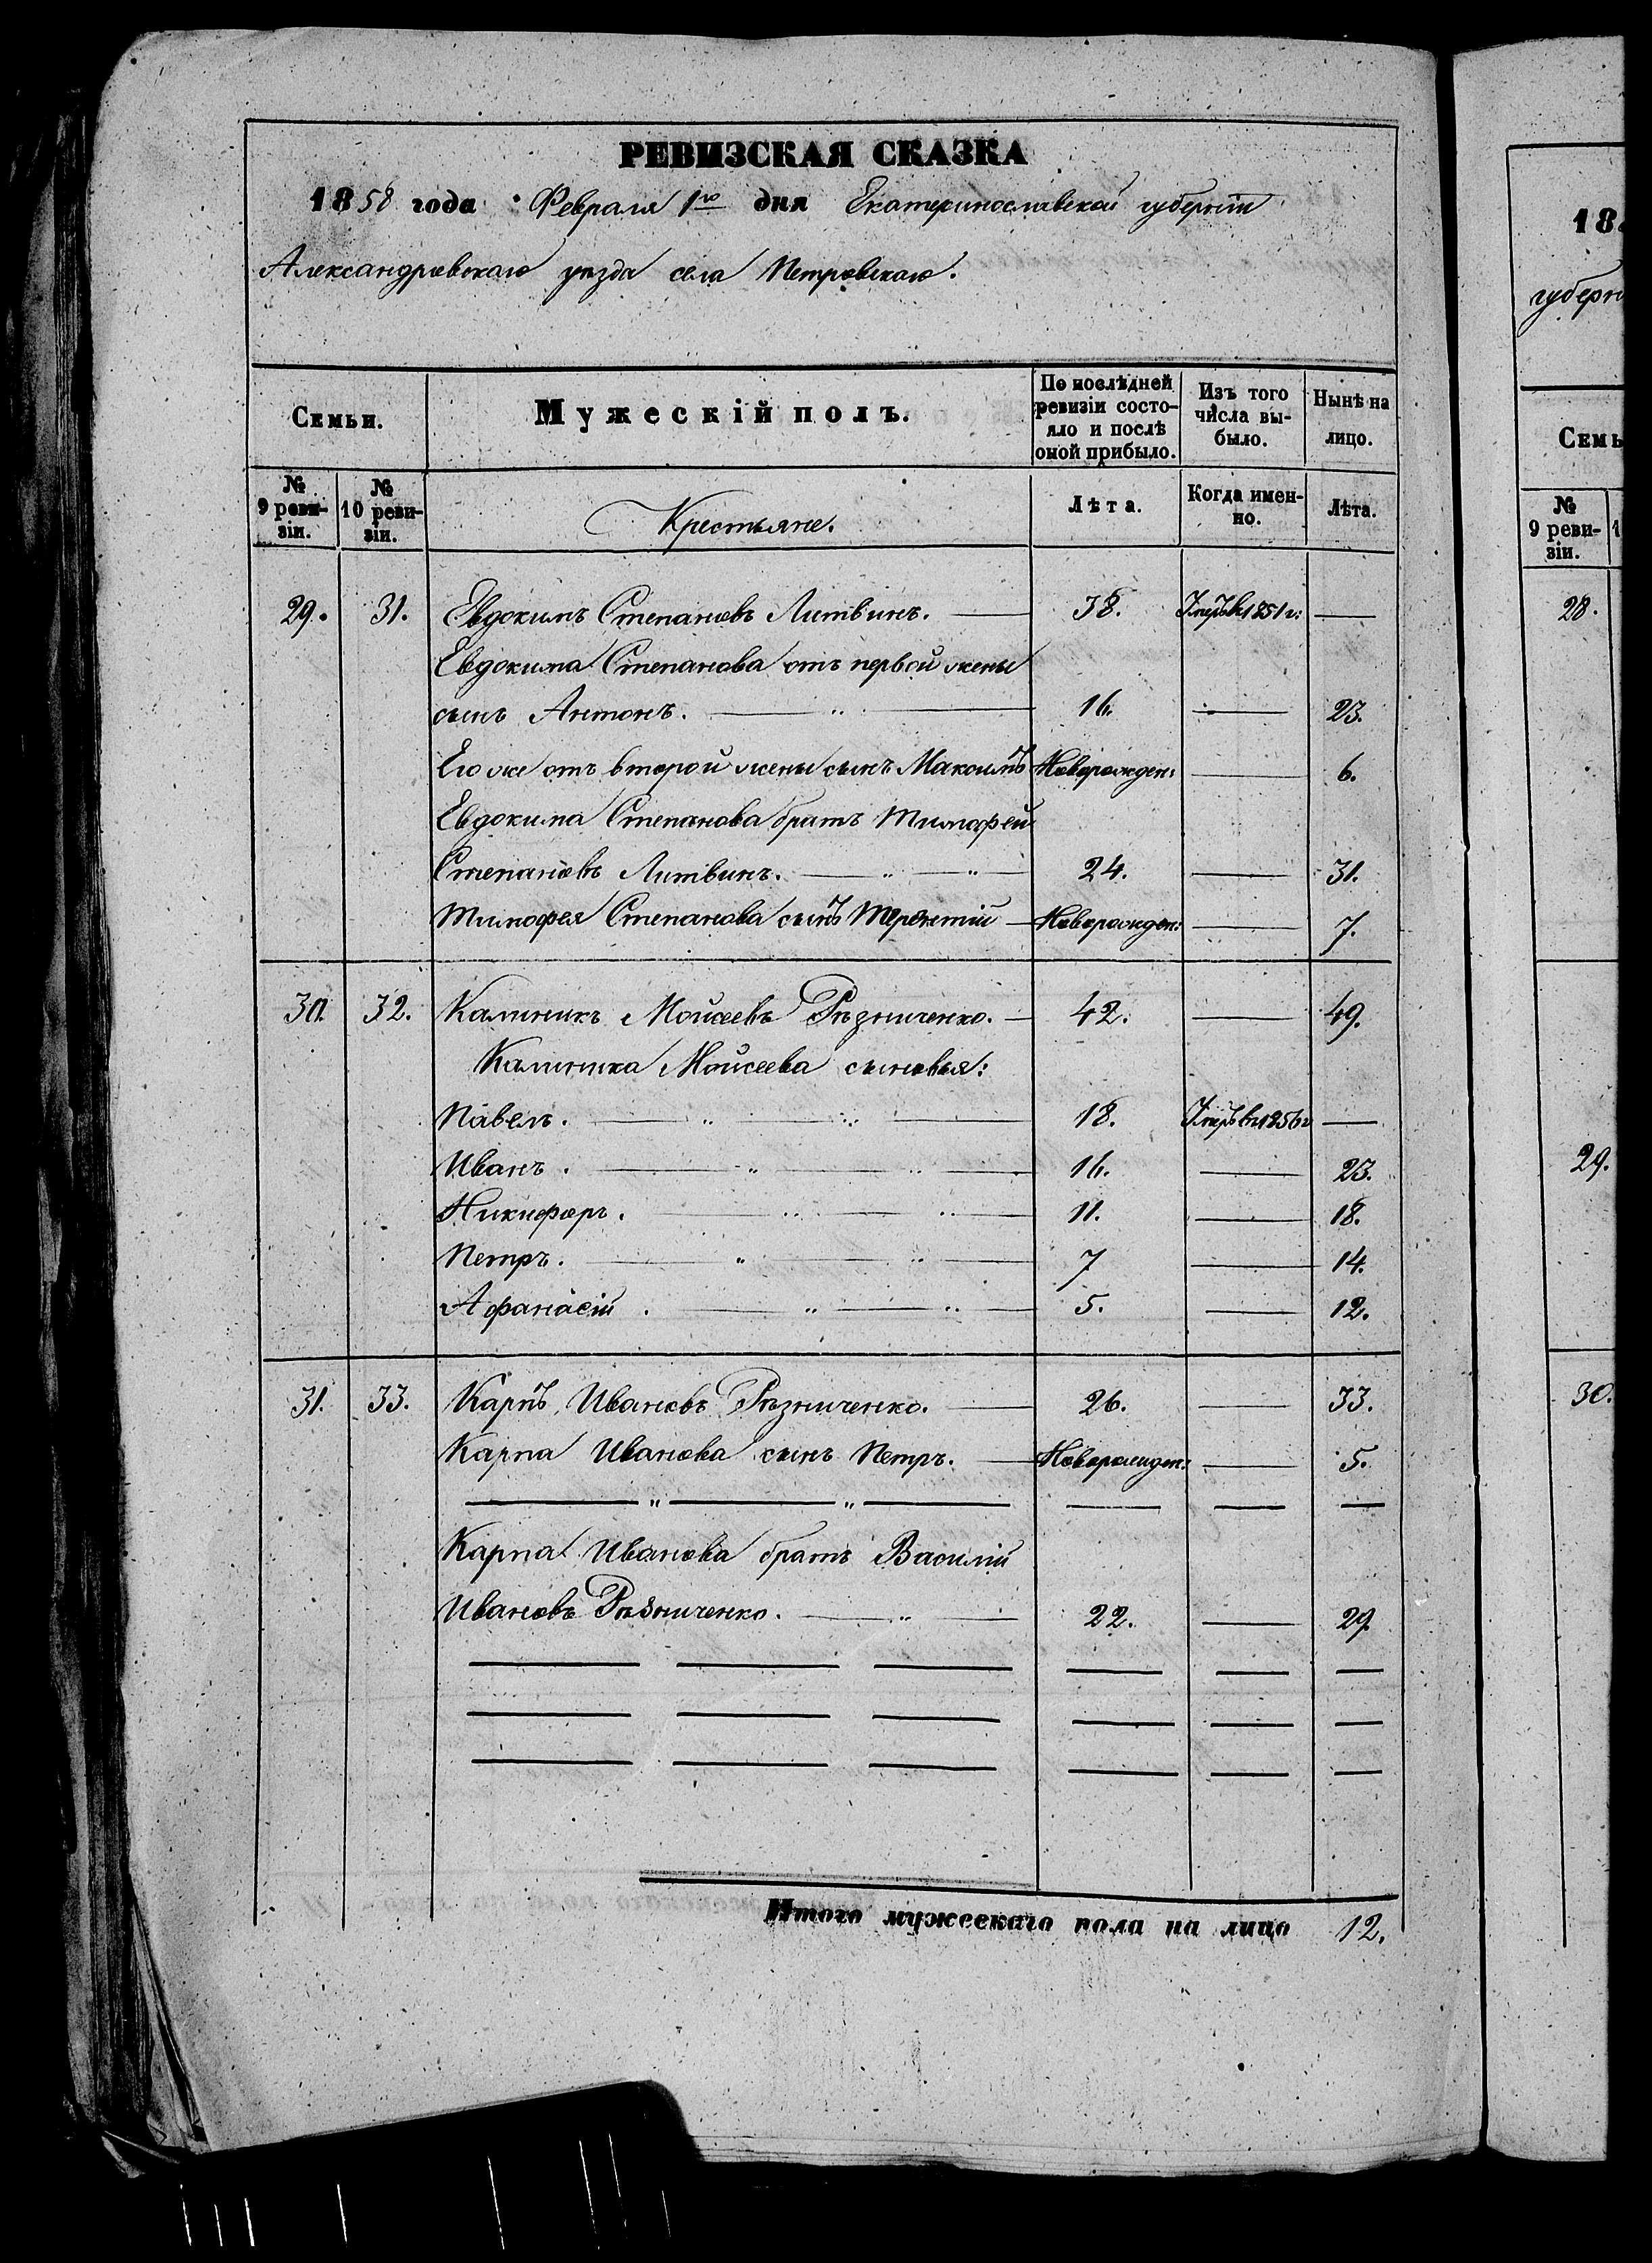 РЕВИЗСКАЯ СКАЗКА
1858 года Февраля 1го дня Екатеринославской губерніи
Александровскаго уезда села Петровскаго.
Семьи.
Мужескій полъ.
По послѣдней ревизіи состо-
яло и послѣ
оной прибыло.
Изъ того
числа вы-
было.
Нынѣ на
лицо.
№
9 реви-
зіи.
№
10 реви-
зіи.
Крестьяне.
Лѣта.
Когда имен-
но.
Лѣта.
29. 31. Евдокимъ Степановъ Литвинъ. — 38. Умеръ въ 1851 г: —
Евдокима Степанова отъ первой жены
сынъ Антонъ. — „ — 16. — 23.
Его же отъ второй жены сынъ Максимъ Новорожден: — 6.
Евдокима Степанова братъ Тимофей
Степановъ Литвинъ. — „ — „ — 24. — 31.
Тимофея Степанова сынъ Терентій — Новорожден: — 7.
30. 32. Калиникъ Мойсеевъ Рѣзниченко. — 42. — 49.
Калиника Мойсеева сыновья:
Павелъ. — „ — „ — 18. Умеръ въ 1856 г —
Иванъ. — „ — „ — 16. — 23.
Никифоръ. — „ — „ — 11. — 18.
Петръ. — „ — „ — 7 — 14.
Афанасій. — „ — „ — 5. — 12.
31. 33. Карпъ Ивановъ Рѣзниченко. — 26. — 33.
Карпа Иванова сынъ Петръ. — Новорожден: — 5.
— „ — „ — — — —
Карпа Иванова братъ Василій
Ивановъ Рѣзниченко. — „ — 22. — 29.
Итого мужескаго пола на лицо 12.
губерн
Семь
№
9 реви-
зіи.
28.
29.
30.